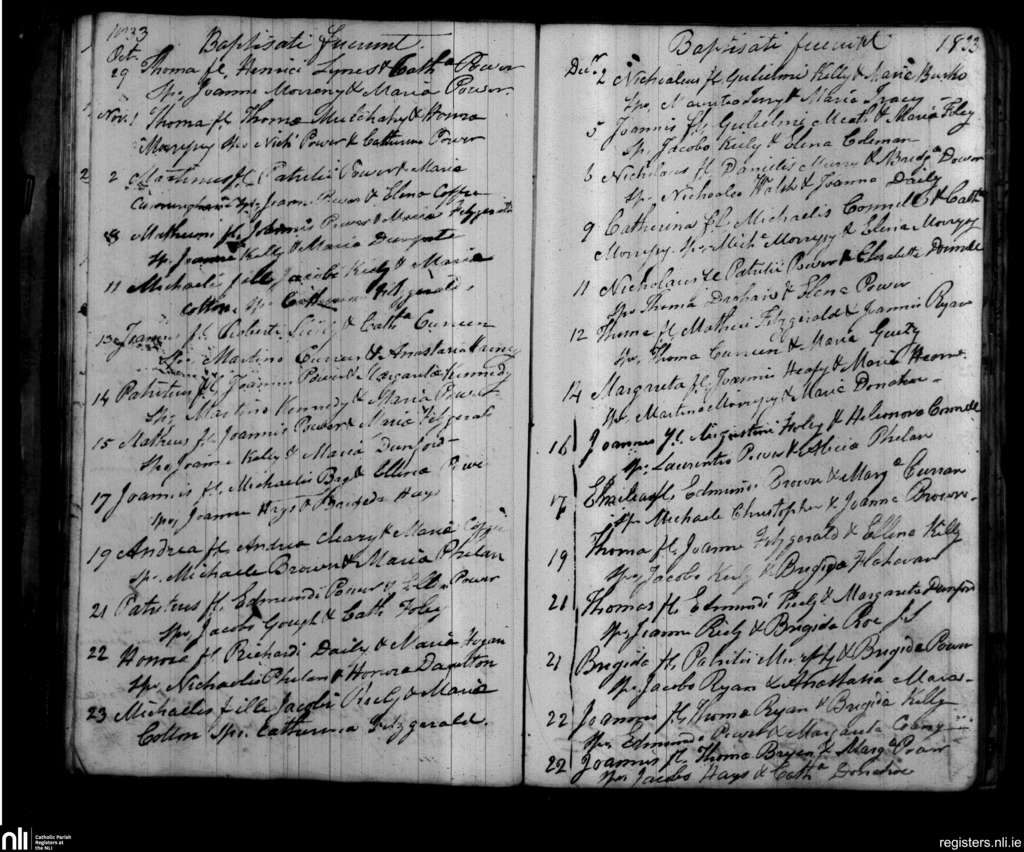 1833
Baptisati fuerunt.
Oct.
29 Thoma fl, Henrici Lynes & Cath.a Power
Sps, Joanne Morrony & Maria Power.
Nov. 1 Thoma fl. Thoma Mulchahy & Honora
Morrpy Sps Nich. Power & Catherine Power
2 2 Martinus fl, Patritii Power & Maria
Cunningham Sps, Joanne Power & Elena Coffee
8 Matheus fl. Joannis Power & Maria Fitzgerald
Sp, Joanne Kelly & Maria
11 Michaeli fille Jacobi Kiely & Maria
Cotton. Sp. Catherina Fitzgerald,
13 fl. Roberti & Cath.a Curreen
Sps, Martino Curreen & Anastaria
14 Patritius fl, Joannis Power & Margarita Kennedy
Sps, Martino Kennedy & Maria Power
15 Matheus fl. Joannis Power & Maria Fitzgerald
Sps, Joanne Kiely & Maria Dunford
17 Joannis fl. Michaelis & Ellena
Sps, Joanne Hays & Brigida Hays
19 Andrea fl. Andrea Cleary & Maria
Sp. Michaele Brown & Maria Phelan
21 Patritius fl, Edmundi Power & Power
Sps, Jacobo Gough & Cath. Foley
22 Honora fl, Richardi Daily & Maria Hogan
Sps, Nichaelis Phelan & Honora Daulton
23 Michaelis filla Jacobi Kiely & Maria
Cotton Sps. Catherina Fitzgerald.
Baptisati fuerunt 1833
Decr. 2 Nicholaus fl Gulielmi Kelly & Maria Burke
Sps, Mauritio Terry & Maria Tracy
5 Joannis fl, Gulielmi Meat & Maria Foley
Sp. Jacobo Kiely & Elena Coleman
6 Nicholaus fl Danielis & Bridg.a
Sp, Nicholas Walsh & Joanna Daily
9 Catherina fl, Michaelis Connell & Cath.a
Morrpy. Sps, Mich.e Morrpy & Elena Morrpy
11 Nicholaus fl Patritii Power &
Sps Thoma & Elena Power
12 Thoma fl, Mathei Fitzgerald & Joannis Ryan
Sp, Thoma Curreen & Maria
14 Margreta fl, Joannis Heafy & Maria
Sp. Martino Morrpy & Maria Donahoe
16 Joannes fl. Augustini Foley & Helenora Connell
Sp. Laurentio Power & Alicia Phelan
17 fl, Edmundi Brown & Marg.a Curran
Sp. Michaele Christopher & Joanna Brown
19 Thoma fl, Joanne Fitzgerald & Ellena Kelly
Sps, Jacobo Kiely & Brigida Flahavan
21 Thomas fl, Edmundi Kiely & Margarita Dunford
Sps, Joanne Kiely & Brigida Roe
21 Brigida fl. Patritii Murphy & Brigida Power
Sp. Jacobo Ryan & Anastatia
22 Joannes fl, Thoma Ryan & Brigida Kelly
Sps, Edmundi Power & Margarita
22 Joannis fl. Thoma Bryan & Marg.a Power
Sps Jacobo Hays & Cath.a Donahoe
nli Catholic Parish
Registers at
the NLI
registers.nli.ie